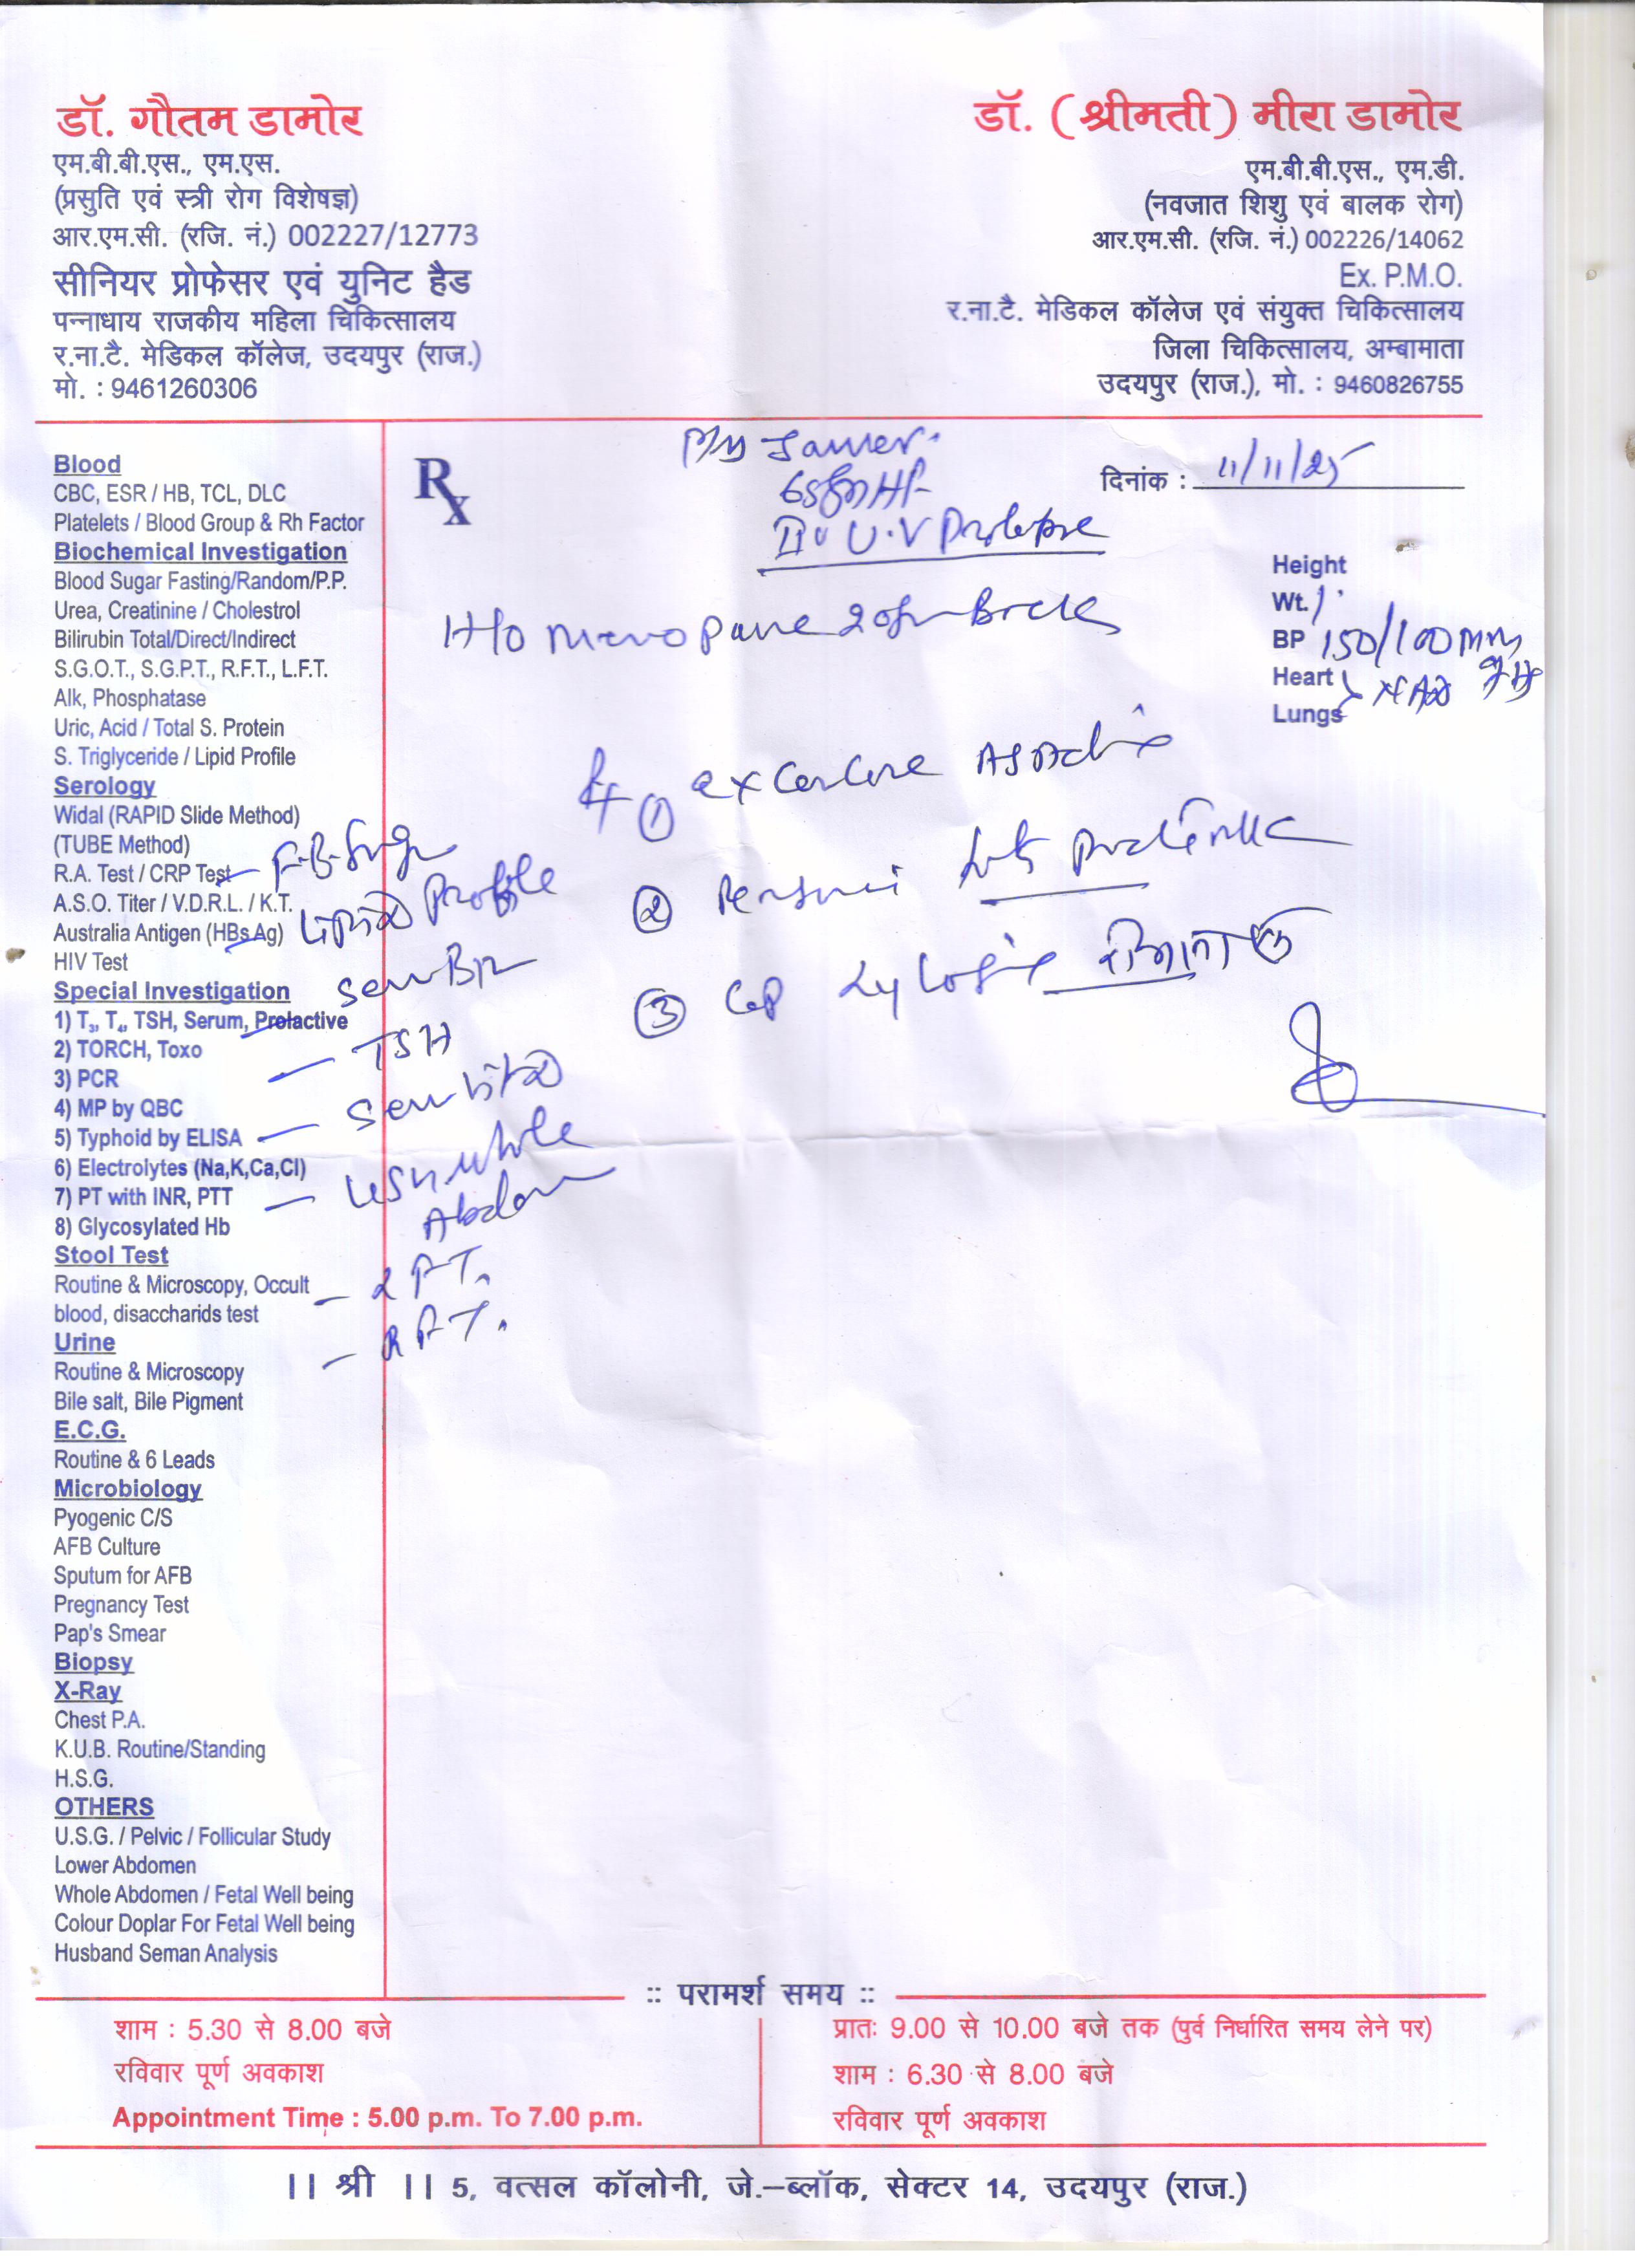 डॉ. गौतम डामोर
एम.बी.बी.एस., एम.एस.
(प्रसुति एवं स्त्री रोग विशेषज्ञ)
आर.एम.सी. (रजि. नं.) 002227/12773
सीनियर प्रोफेसर एवं युनिट हैड
पन्नाधाय राजकीय महिला चिकित्सालय
र.ना.टै. मेडिकल कॉलेज, उदयपुर (राज.)
मो. : 9461260306
डॉ. (श्रीमती) मीरा डामोर
एम.बी.बी.एस., एम.डी.
(नवजात शिशु एवं बालक रोग)
आर.एम.सी. (रजि. नं.) 002226/14062
Ex. P.M.O.
र.ना.टै. मेडिकल कॉलेज एवं संयुक्त चिकित्सालय
जिला चिकित्सालय, अम्बामाता
उदयपुर (राज.), मो. : 9460826755
Blood
CBC, ESR / HB, TCL, DLC
Platelets / Blood Group & Rh Factor
Biochemical Investigation
Blood Sugar Fasting/Random/P.P.
Urea, Creatinine / Cholestrol
Bilirubin Total/Direct/Indirect
S.G.O.T., S.G.P.T., R.F.T., L.F.T.
Alk, Phosphatase
Uric, Acid / Total S. Protein
S. Triglyceride / Lipid Profile
Serology
Widal (RAPID Slide Method)
(TUBE Method)
R.A. Test / CRP Test
A.S.O. Titer / V.D.R.L. / K.T.
Australia Antigen (HBs Ag)
HIV Test
Special Investigation
1) T3, T4, TSH, Serum, Prolactive
2) TORCH, Toxo
3) PCR
4) MP by QBC
5) Typhoid by ELISA
6) Electrolytes (Na,K,Ca,Cl)
7) PT with INR, PTT
8) Glycosylated Hb
Stool Test
Routine & Microscopy, Occult
blood, disaccharids test
Urine
Routine & Microscopy
Bile salt, Bile Pigment
E.C.G.
Routine & 6 Leads
Microbiology
Pyogenic C/S
AFB Culture
Sputum for AFB
Pregnancy Test
Pap's Smear
Biopsy
X-Ray
Chest P.A.
K.U.B. Routine/Standing
H.S.G.
OTHERS
U.S.G. / Pelvic / Follicular Study
Lower Abdomen
Whole Abdomen / Fetal Well being
Colour Doplar For Fetal Well being
Husband Seman Analysis
Rx
दिनांक : 11/11/25
U.V Prolapse
H/o
Height
Wt.
BP 150/100 mm
Heart NAD
Lungs
①
②
③ Cap
Lipid Profile
TSH
whole
Abdom
LFT.
RFT.
:: परामर्श समय ::
शाम : 5.30 से 8.00 बजे
रविवार पूर्ण अवकाश
Appointment Time : 5.00 p.m. To 7.00 p.m.
प्रातः 9.00 से 10.00 बजे तक (पुर्व निर्धारित समय लेने पर)
शाम : 6.30 से 8.00 बजे
रविवार पूर्ण अवकाश
।। श्री ।। 5, वत्सल कॉलोनी, जे.-ब्लॉक, सेक्टर 14, उदयपुर (राज.)